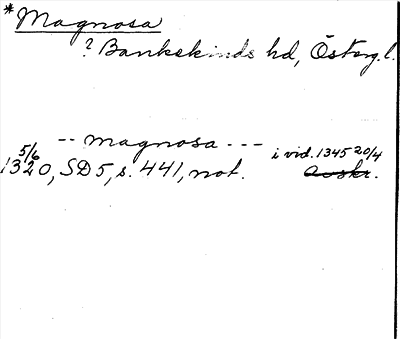 *Magnosa
? Bankekinds hd, Österg. l.
-- magnosa ---
1320 5/6, SD5, s. 441, not. i vid. 1345 20/4
Avskr.